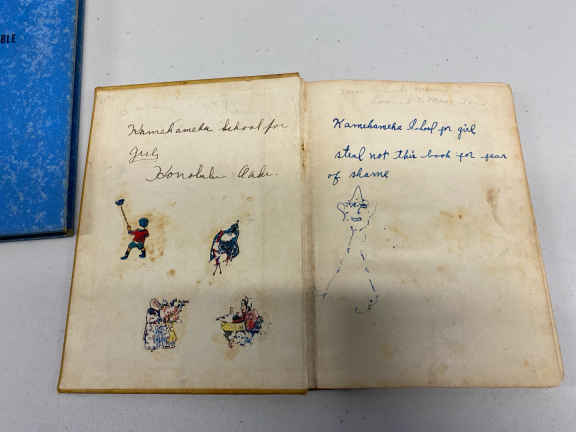 BLE
Kamehameha School for
Girls
Honolulu Oahu.
Kamehameha School for girl
steal not this book for fear
of shame